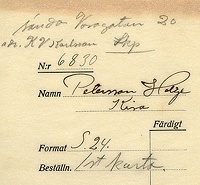 sända Vasagatan 20
adr. K V Karlsson Skp
N:r 6830
Namn Petersson Helge
Kira
Färdigt
Format S. 24.
Beställn. 1 st karta